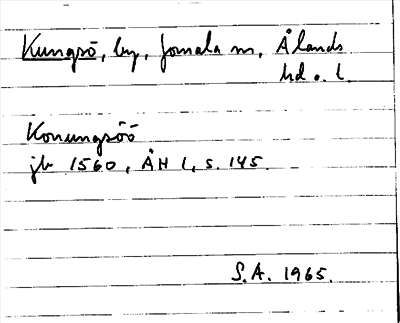 Kungsö, by, Jomala sn, Ålands
hd o. l.
Konungsöö
jb 1560, ÅH 1, s. 145.
S.A. 1965.